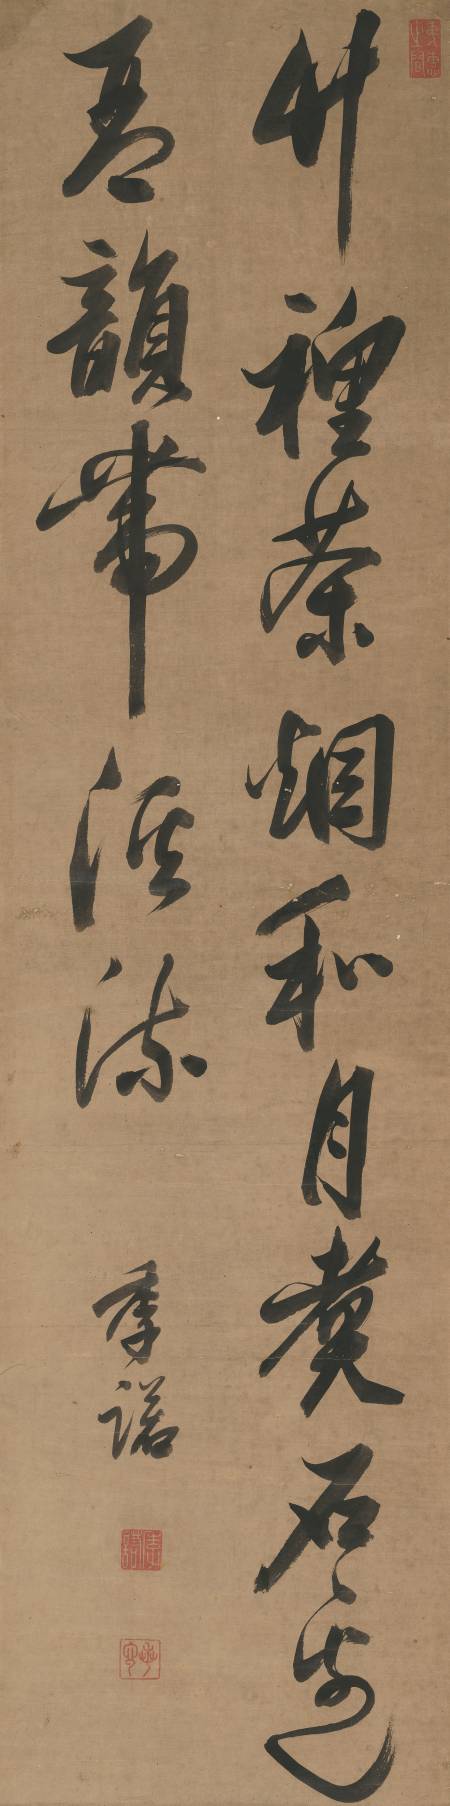 竹裡茶烟和月煮石邊
琴韻帶溪流
季諾